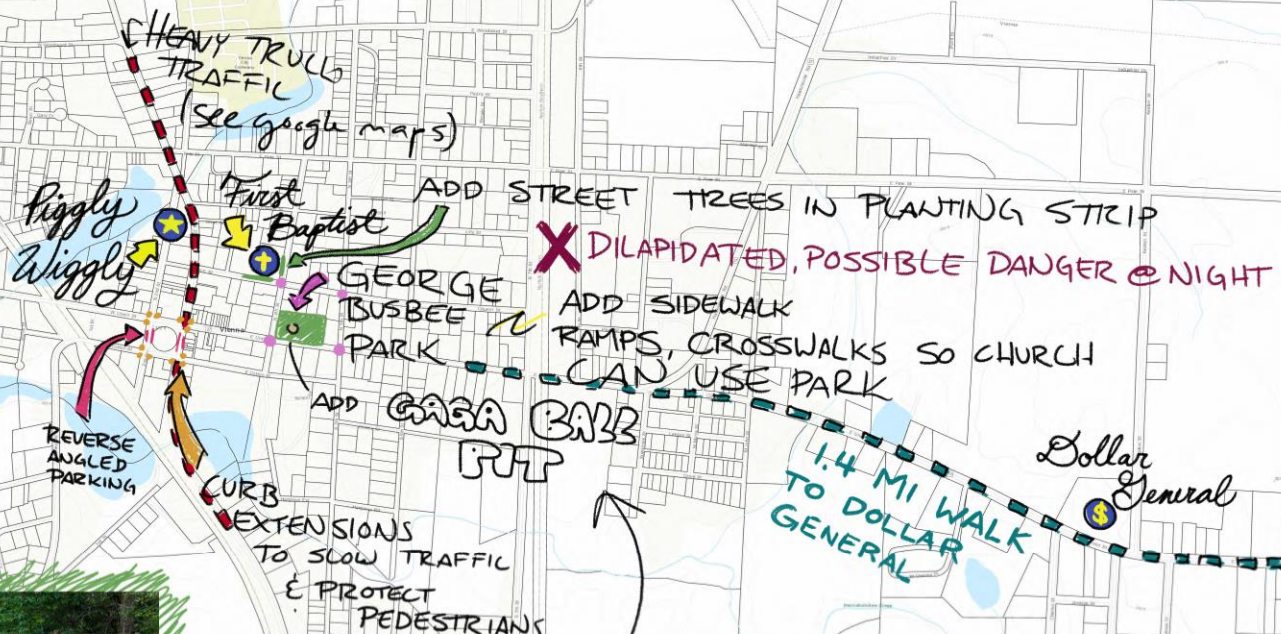 HEAVY TRULL
TRAFFIC
(see google maps)
Piggly
Wiggly
First
Baptist
ADD STREET TREES IN PLANTING STRIP
X DILAPIDATED, POSSIBLE DANGER @ NIGHT
GEORGE
BUSBEE
PARK
ADD SIDEWALK
RAMPS, CROSSWALKS SO CHURCH
CAN USE PARK
ADD GAGA BALL
PIT
REVERSE
ANGLED
PARKING
CURB
EXTENSIONS
TO SLOW TRAFFIC
& PROTECT
PEDESTRIANS
1.4 MI WALK
TO DOLLAR
GENERAL
Dollar
General
$
Vienna